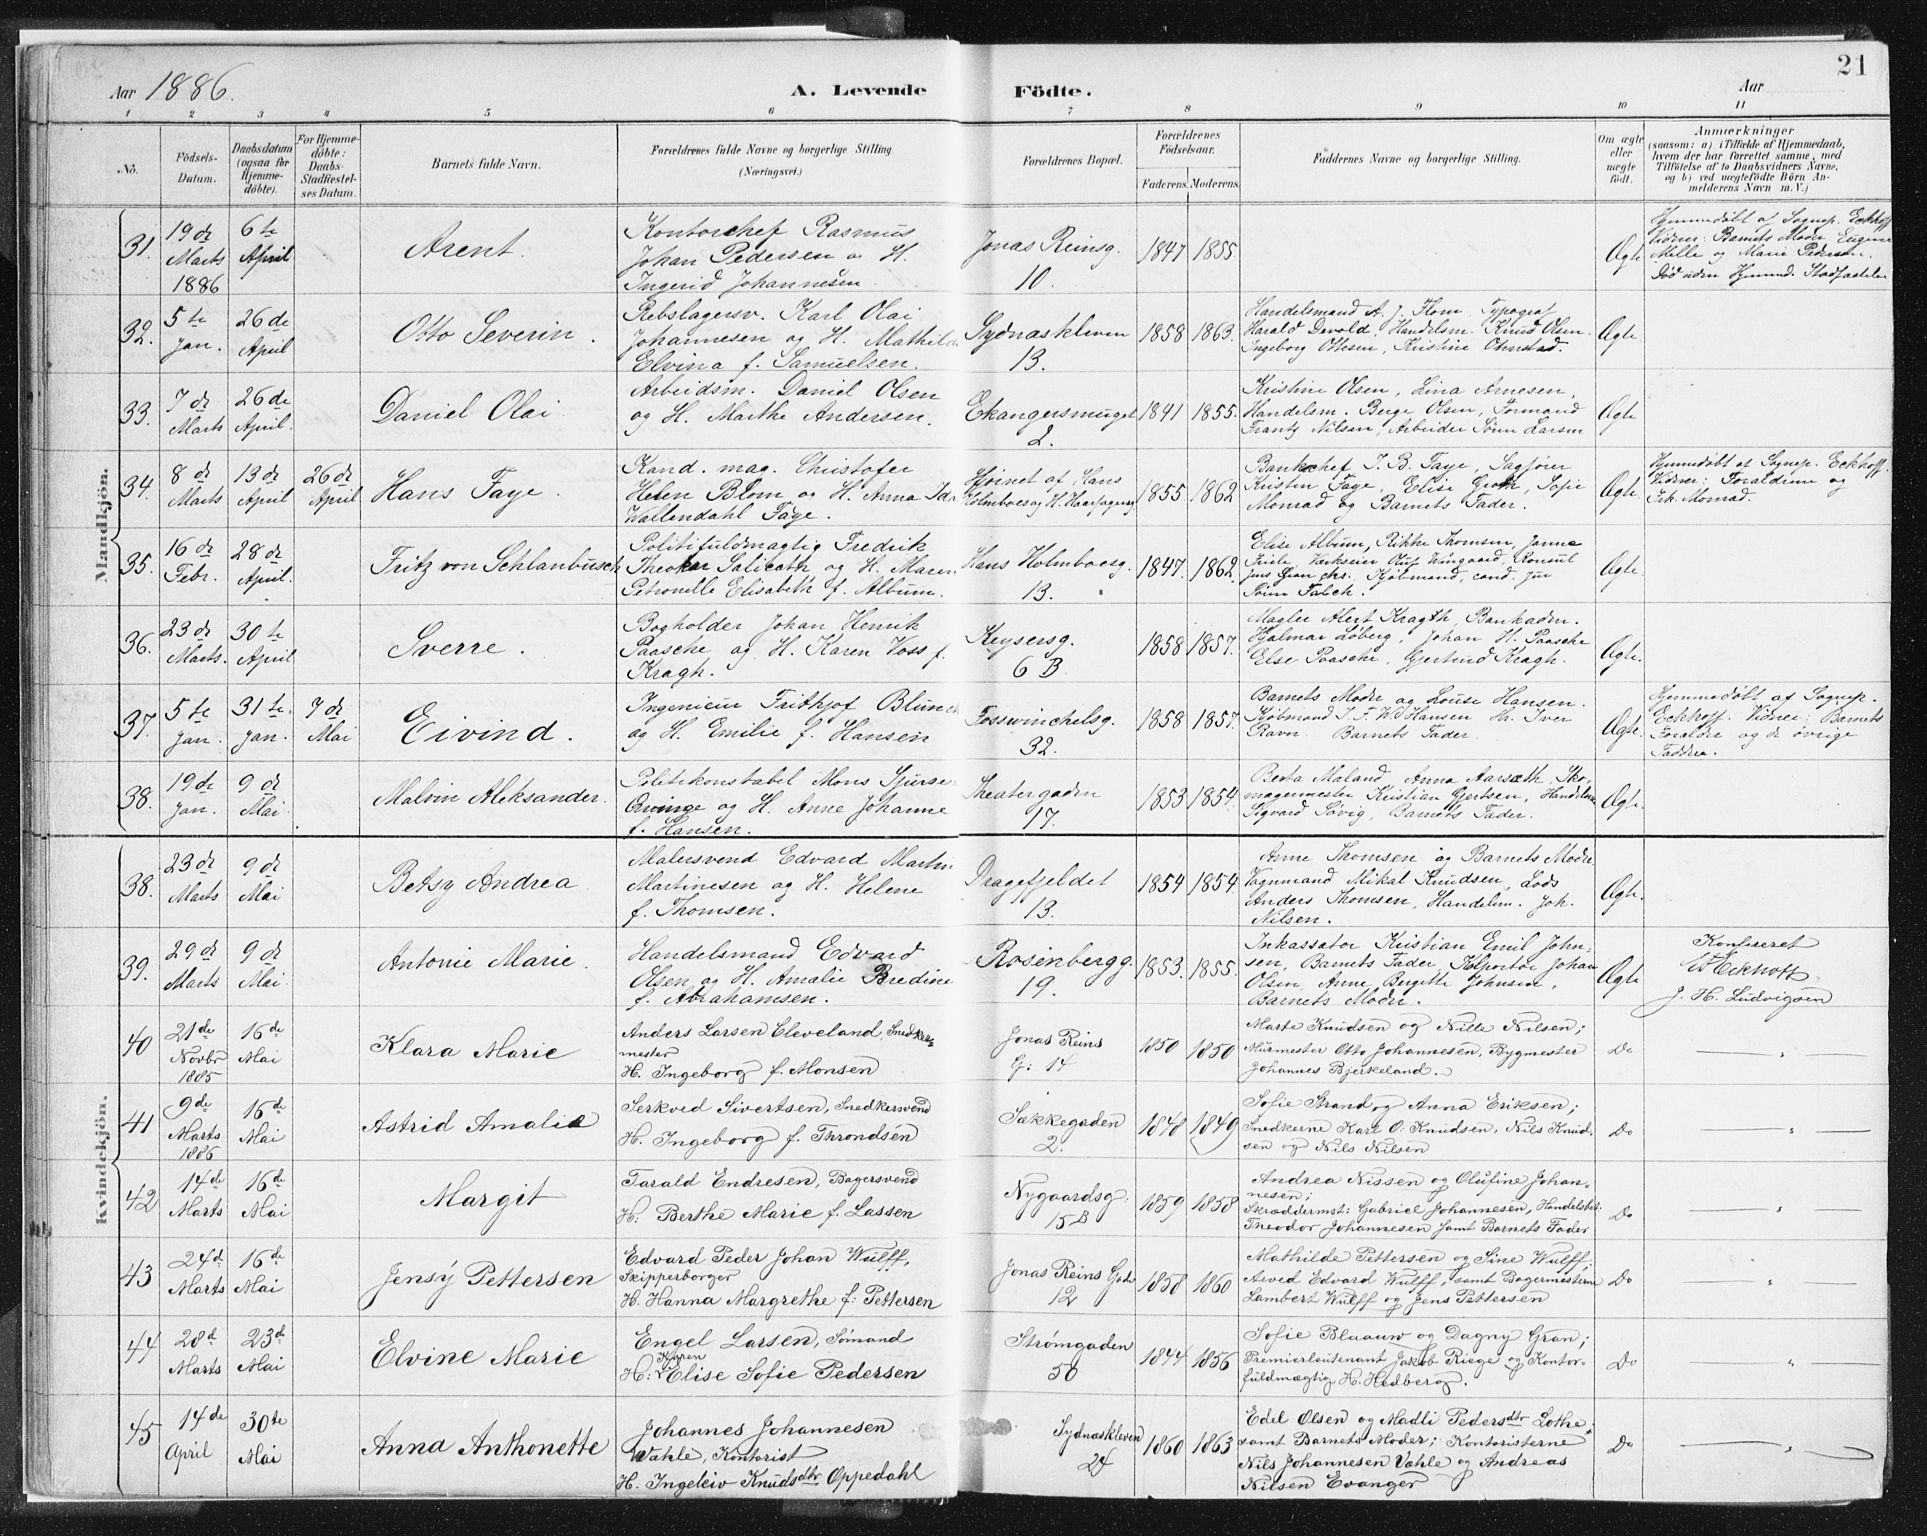 Aar 1886. A. Levende Födte. Aar 21
1 2 3 4 5 6 7 8 9 10 11
No. Födsels-Datum. Daabsdatum (ogsaa for Hjemmedöbte). For Hjemmedöbte: Daabs-Stadfæstelses Datum. Barnets fulde Navn. Forældrenes fulde Navne og borgerlige Stilling. (Næringsvei.) Forældrenes Bopæl. Forældrenes Födselsaar. Faderens. Moderens. Faddernes Navne og borgerlige Stilling. Om ægte eller uægte födt. Anmærkninger (saasom: a) i Tilfælde af Hjemmedaab, hvem der har forrettet samme, med Tilföielse af to Daabsvidners Navne, og b) ved uægtefödte Börn Anmelderens Navn m. V.)
Mandkjön.
31. 19de Marts 1886 6te April
Arent.
Kontorchef Rasmus
Johan Pedersen o H.
Ingerid Johannesen
Jonas Reinsg.
10.
1847 1855.
Ægte
Hjemmedøbt af Sognep. Eckhoff
Vidner: Barnets Moder Eugene
Melle og Marie Pedersen.
Død uden Hjemmd. Stadfæstelse
32. 5te Jan. 26de April
Otto Severin.
Rebslagersv. Karl Olai
Johannesen og H. Mathilde
Elvina f. Samuelsen.
Sydnæskleven
13.
1858 1863.
Handelsmand A. J. Flom, Typograf
Harald Devold Handelsm. Knud Olsen
Ingeborg Ottesen, Kristine Otmstad.
Ægte
33. 7de Marts 26de April.
Daniel Olai.
Arbeidsm. Daniel Olsen
og H. Marthe Andersen.
Ekangersmuget
2.
1841 1855.
Kristine Olsen, Lina Arnesen,
Handelsm. Berge Olsen, Formand
Frantz Nilsen, Arbeider Sören Larsen
Ægte
34. 8de Marts 13de April 26de April
Hans Faye.
Kand. mag. Christofer
Helen Blom og H. Anna Ida
Wallendahl Faye.
Hjørnet af Hans
Holmboesg og H. Haarfagersg
1855 1862
Bankchef J. B. Faye, Sagfører
Kristen Faye, Elise Groth, Sofie
Monrad og Barnets Fader.
Ægte.
Hjemmedøbt af Sognep. Eckhoff.
Vidner: Forældrene og
Frk. Monrad.
35. 16de Febr. 28de April.
Fritz von Schlanbusch
Politifuldmægtig Fredrik
Theokar Salicath og H. Maren
Petronelle Elisabeth f. Album.
Hans Holmboesg.
13.
1847. 1862.
Elise Album, Rikke Thomsen, Janna
Friele Værkseier Oluf Wingaard, Konsul
Jens Gran chr. Kjøbmand, cand. jur
Sören Falch.
Ægte
36. 23de Marts. 30te April
Sverre.
Bogholder Johan Henrik
Paasche og H. Karen Voss f.
Kragh.
Keysersg.
6 B.
1858 1857.
Mægler Alert Kragth, Bankadm.
Hjalmar Löberg, Johan H. Paasche
Else Paasche, Gjertrud Kragh.
Ægte.
37. 5te Jan. 31te Jan. 7de Mai
Eivind.
Ingenieur Frithjof Blunck
og H. Emilie f. Hansen
Fosswinchelsg.
32.
1858 1857.
Barnets Moder og Louise Hansen.
Kjøbmand J. F. W. Hansen Hr. Iver
Ravn Barnets Fader.
Ægte.
Hjemmedøbt af Sognep.
Eckhoff. Vidner: Barnets
Forældre og de øvrige
Faddere.
38. 19de Jan. 9de Mai.
Malvin Aleksander.
Politikonstabel Mons Sjursen
Evange og H. Anne Johanne
f. Hansen.
Theatergaden
17.
1853 1854.
Berta Maland, Anna Aarsæth, Sko-
magermester Kristian Gjertsen, Handelsm
Sigvard Søvig, Barnets Fader.
Ægte.
Kvindekjön.
38. 23de Marts 9de Mai
Betsy Andrea.
Malersvend Edvard Martin
Martinesen og H. Helene
f. Thomsen.
Dragefjeldet
13.
1854 1854.
Anne Thomsen og Barnets Moder
Vognmand Mikal Knudsen, Lods
Anders Thomsen, Handelsm. Joh.
Nilsen.
Ægte.
39. 29de Marts 9de Mai
Antonie Marie.
Handelsmand Edvard
Olsen og H. Amalie Bredine
f. Abrahamsen.
Rosenbergg.
19.
1853. 1855.
Inkassator Kristian Emil John-
sen, Barnets Fader Kolportør Johan
Olsen, Anne, Bergitte Johnsen,
Barnets Moder.
Ægte
Konfereret
W Eckhoff
J. H. Ludvigsen
40 21de Novbr 1885 16de Mai
Klara Marie
Anders Larsen Cleveland, Snedker-
mester
H. Ingeborg f. Monsen
Jonas Reins
G: 14
1850 1850
Marte Knudsen og Nille Nilsen;
Murmester Otto Johannesen, Bygmester
Johannes Bjerkeland.
Do
— " —
41 9de Marts 1886 16de Mai
Astrid Amalie
Serkved Sivertsen, Snedkersvend
H. Ingeborg f. Throndsen
Sækkegaden
2.
1848 1849
Sofie Strand og Anna Eriksen;
Snedkerne Karl O. Knudsen, Nils Knud-
sen og Nils Nilsen
Do
— " —
42 14de Marts 16de Mai
Margit
Tarald Endresen, Bagersvend
H: Berthe Marie f. Lassen
Nygaardsg:
15 B
1859 1858
Andrea Nissen og Olufine Johan-
nesen;
Skræddermst: Gabriel Johannesen, Handelsbet.
Theodor Johannesen samt Barnets Fader
Do
— " —
43 24d Marts 16de Mai
Jensy Pettersen
Edvard Peder Johan Wulff,
Skipperborger
H. Hanna Margrethe f: Pettersen
Jonas Reins Gade
12
1858 1860
Mathilde Pettersen og Sine Wulff,
Arved Edvard Wulff, samt Bagermesterne
Lambert Wulff og Jens Pettersen
Do
— " —
44 28d Marts 23d Mai
Elvine Marie
Engel Larsen, Sømand
Karen
H: Elise Sofie Pedersen
Strømgaden
50
1844 1856
Sofie Blaauw og Dagny Gran;
Premierleutenant Jakob Riege og Kontor-
fuldmægtig H. Hedberg.
Do
— " —
45 14de April 30te Mai
Anna Anthonette
Johannes Johannesen
Vahle, Kontorist
H. Ingeleiv Knudsdtr Oppedahl
Sydnæskleven
24
1860 1863
Edel Olsen og Madli Pedersdtr Lothe
samt Barnets Moder; Kontoristerne
Nils Johannesen Vahle og Andreas
Nilsen Evanger
Do
— " —